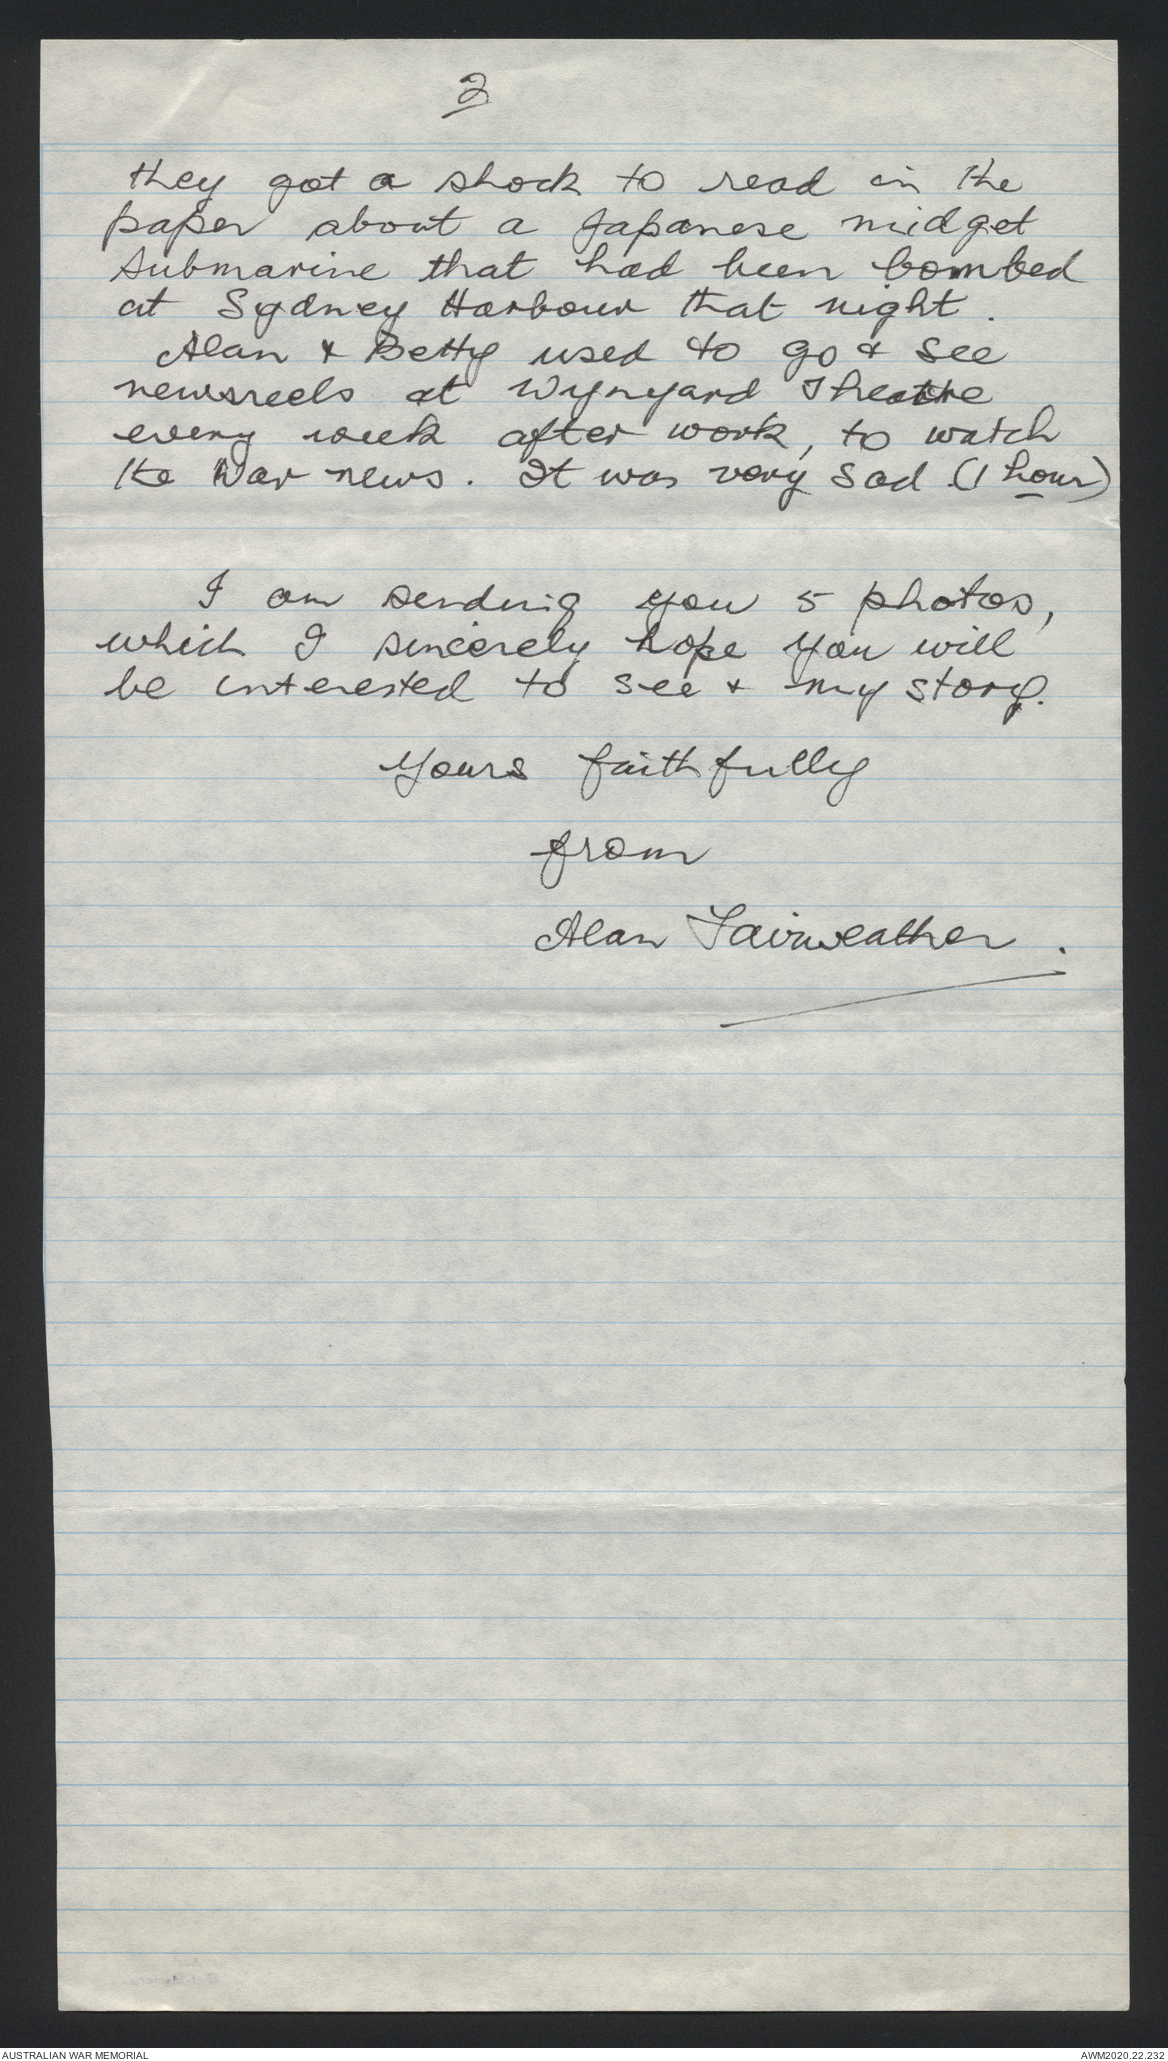 2
they got a shock to read in the
paper about a Japanese midget
submarine that had been bombed
at Sydney Harbour that night.
Alan & Betty used to go & see
newsreels at Wynyard Theatre
every week after work, to watch
the War news. It was very sad (1 hour)
I am sending you 5 photos,
which I sincerely hope you will
be interested to see & my story.
Yours faithfully
from
Alan Fairweather.
AUSTRALIAN WAR MEMORIAL
AWM2020.22.232